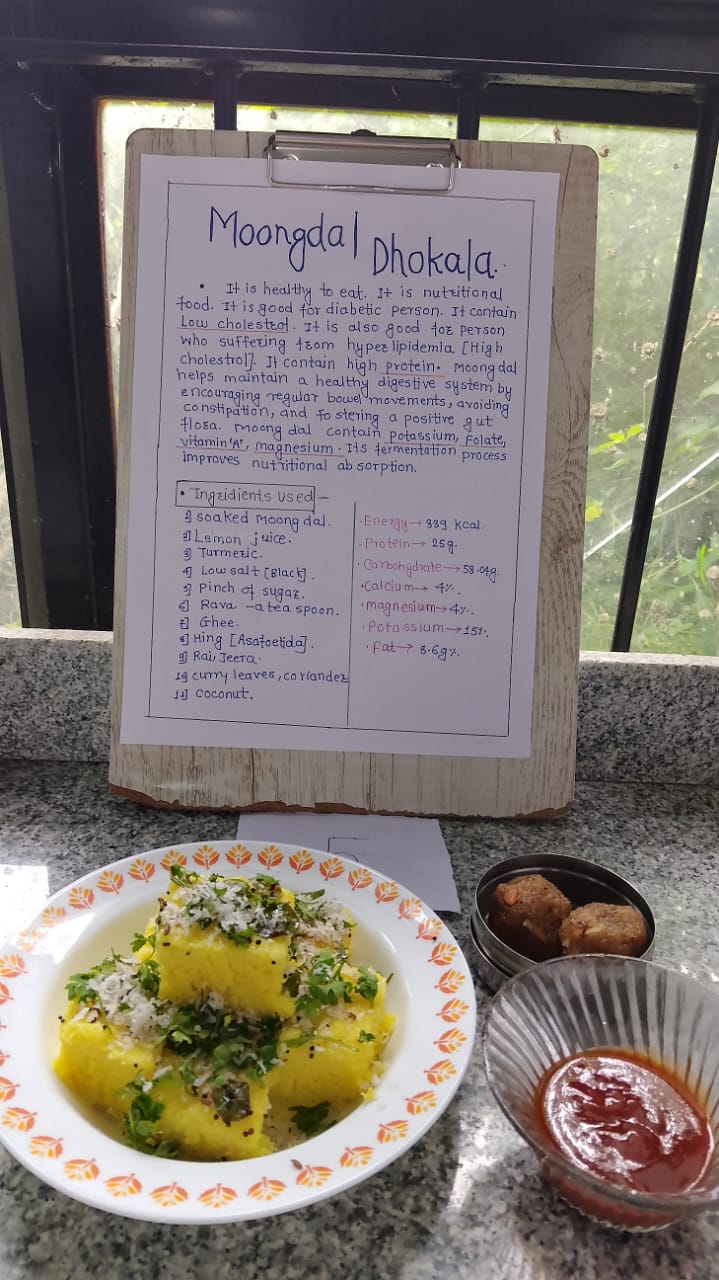 Moongdal Dhokala.
• It is healthy to eat. It is nutritional
food. It is good for diabetic person. It contain
Low cholestrol. It is also good for person
who suffering from hyper lipidemia [High
cholestrol]. It contain high protein. Moong dal
helps maintain a healthy digestive system by
encouraging regular bowel movements, avoiding
constipation, and fostering a positive gut
flora. Moong dal contain potassium, folate,
vitamin 'A', magnesium. Its fermentation process
improves nutritional absorption.
• Ingridients used –
1] soaked moong dal.
2] Lemon juice.
3] Turmeric.
4] Low salt [Black].
5] Pinch of sugar.
6] Rava - a tea spoon.
7] Ghee.
8] Hing [Asafoetida].
9] Rai, Jeera.
10] curry leaves, coriander
11] coconut.
• Energy → 339 kcal.
• Protein → 25g.
• Carbohydrate → 58.04g.
• Calcium → 4%.
• magnesium → 4%.
• Potassium → 15%.
• Fat → 8.6g%.
5